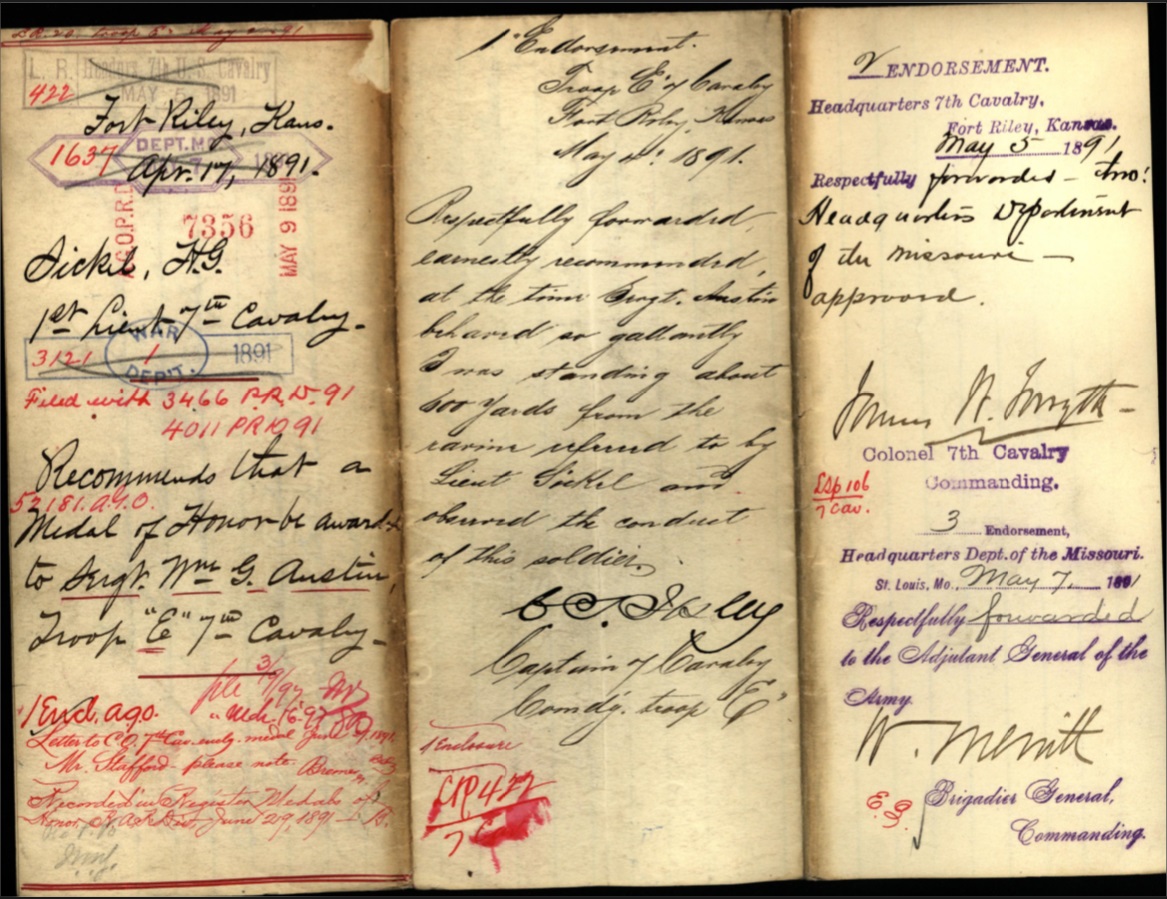 L. R. Headqrs. 7th U. S. Cavalry
422 MAY 5 1891
Fort Riley, Kans.
1637 DEPT. MO.
Apr. 17, 1891.
7356
MAY 9 1891
Sickel, H.G.
1st Lieut 7th Cavalry-
WAR
3121 1 1891
DEP'T.
Filed with 3466 P.R.D. 91
4011 PRD 91
Recommends that a
52181.A.G.O.
Medal of Honor be award-
to Sergt. Wm G. Austin,
Troop "E" 7th Cavalry-
file 3/9/97
1 Encl. ago.
Letter to C.O. 7th Cav. medal June 1891.
Mr. Stafford - please note
Recorded in Register Medals of
Honor, June 29, 1891
1" Endorsement.
Troop E 7 Cavalry
Fort Riley, Kansas
May 4" 1891.
Respectfully forwarded,
earnestly recommended,
at the time Sergt. Austin
behaved so gallantly
I was standing about
600 yards from the
ravine referred to by
Lieut Sickel and
observed the conduct
of this soldier.
Captain 7 Cavalry
Comdg. troop E
1 Enclosure
422
7 C
2 ENDORSEMENT.
Headquarters 7th Cavalry,
Fort Riley, Kansas.
May 5 1891
Respectfully forwarded - thro'
Headquarters Department
of the Missouri -
approved.
James W. Forsyth-
Colonel 7th Cavalry
Commanding.
106
7 Cav.
3 Endorsement,
Headquarters Dept. of the Missouri.
St. Louis, Mo., May 7, 1891
Respectfully forwarded
to the Adjutant General of the
Army.
W. Merritt
Brigadier General,
Commanding.